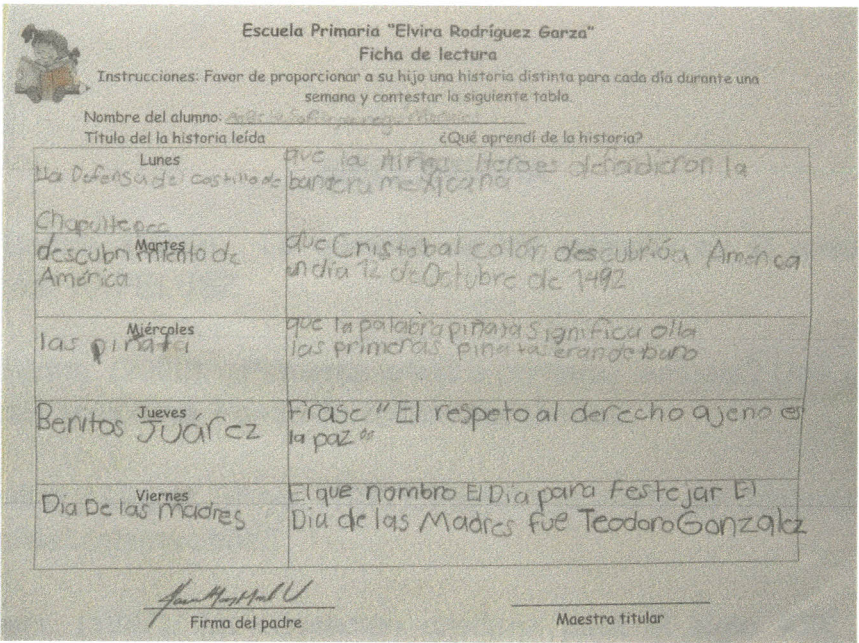 Escuela Primaria "Elvira Rodríguez Garza"
Ficha de lectura
Instrucciones: Favor de proporcionar a su hijo una historia distinta para cada día durante una
semana y contestar la siguiente tabla.
Nombre del alumno:
Título del la historia leída ¿Qué aprendí de la historia?
Lunes
La Defensa del castillo de
Chapultepec
que la Niños Heroes defendieron la
bandera mexicana
Martes
descubrimiento de
América
que Cristobal colón descubrió a América
un día 12 de Octubre de 1492
Miércoles
las piñata
que la palabra piñata significa olla
las primeras piñatas eran de buro
Jueves
Benitos Juárez
Frase "El respeto al derecho ajeno es
la paz"
Viernes
Dia De las madres
El que nombro El Dia para Festejar El
Dia de las Madres fue Teodoro Gonzalez
Firma del padre Maestra titular